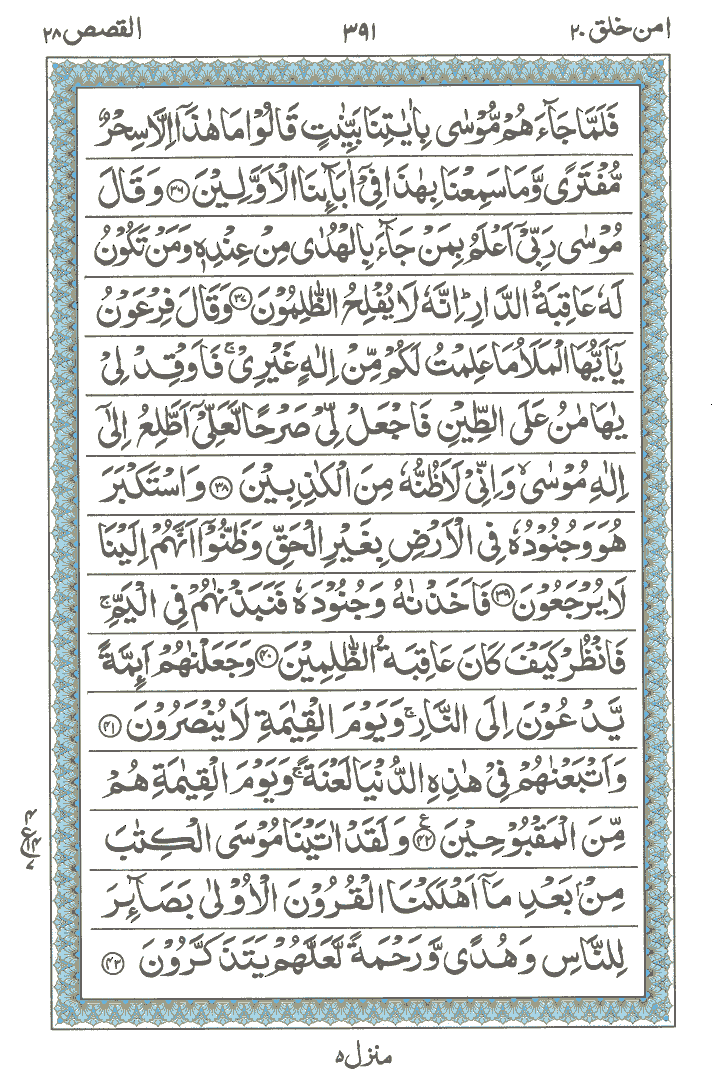 امن خلق ٢٠
٣٩١
القصص ٢٨
فَلَمَّا جَآءَهُمْ مُّوْسٰى بِاٰيٰتِنَا بَيِّنٰتٍ قَالُوْا مَا هٰذَآ اِلَّا سِحْرٌ
مُّفْتَرًى وَّمَا سَمِعْنَا بِهٰذَا فِيْٓ اٰبَآئِنَا الْاَوَّلِيْنَ ﴿٣٦﴾ وَقَالَ
مُوْسٰى رَبِّيْٓ اَعْلَمُ بِمَنْ جَآءَ بِالْهُدٰى مِنْ عِنْدِهٖ وَمَنْ تَكُوْنُ
لَهٗ عَاقِبَةُ الدَّارِ ؕ اِنَّهٗ لَا يُفْلِحُ الظّٰلِمُوْنَ ﴿٣٧﴾ وَقَالَ فِرْعَوْنُ
يٰٓاَيُّهَا الْمَلَاُ مَا عَلِمْتُ لَكُمْ مِّنْ اِلٰهٍ غَيْرِيْ ۚ فَاَوْقِدْ لِيْ
يٰهَامٰنُ عَلَى الطِّيْنِ فَاجْعَلْ لِّيْ صَرْحًا لَّعَلِّيْٓ اَطَّلِعُ اِلٰٓى
اِلٰهِ مُوْسٰى ۙ وَاِنِّيْ لَاَظُنُّهٗ مِنَ الْكٰذِبِيْنَ ﴿٣٨﴾ وَاسْتَكْبَرَ
هُوَ وَجُنُوْدُهٗ فِي الْاَرْضِ بِغَيْرِ الْحَقِّ وَظَنُّوْٓا اَنَّهُمْ اِلَيْنَا
لَا يُرْجَعُوْنَ ﴿٣٩﴾ فَاَخَذْنٰهُ وَجُنُوْدَهٗ فَنَبَذْنٰهُمْ فِي الْيَمِّ ۚ
فَانْظُرْ كَيْفَ كَانَ عَاقِبَةُ الظّٰلِمِيْنَ ﴿٤٠﴾ وَجَعَلْنٰهُمْ اَئِمَّةً
يَّدْعُوْنَ اِلَى النَّارِ ۚ وَيَوْمَ الْقِيٰمَةِ لَا يُنْصَرُوْنَ ﴿٤١﴾
وَاَتْبَعْنٰهُمْ فِيْ هٰذِهِ الدُّنْيَا لَعْنَةً ۚ وَيَوْمَ الْقِيٰمَةِ هُمْ
مِّنَ الْمَقْبُوْحِيْنَ ﴿٤٢﴾ ع وَلَقَدْ اٰتَيْنَا مُوْسَى الْكِتٰبَ
مِنْۢ بَعْدِ مَآ اَهْلَكْنَا الْقُرُوْنَ الْاُوْلٰى بَصَآئِرَ
لِلنَّاسِ وَهُدًى وَّرَحْمَةً لَّعَلَّهُمْ يَتَذَكَّرُوْنَ ﴿٤٣﴾
منزل ٥